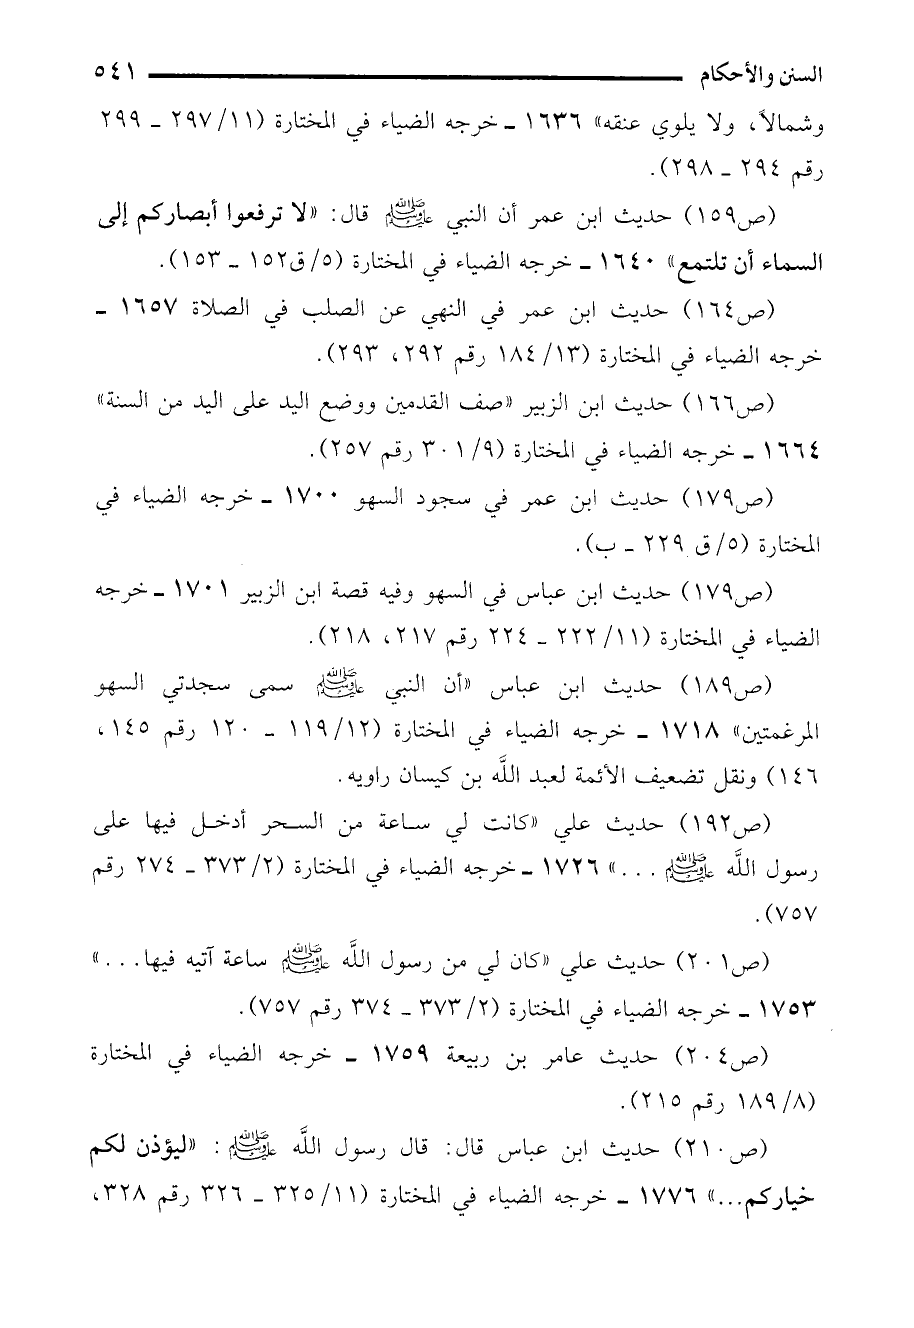 السنن والأحكام ٥٤١
وشمالاً، ولا يلوي عنقه» ١٦٣٦ ـ خرجه الضياء في المختارة (٢٩٧/١١ ـ ٢٩٩
رقم ٢٩٤ ـ ٢٩٨).
(ص١٥٩) حديث ابن عمر أن النبي ﷺ قال: «لا ترفعوا أبصاركم إلى
السماء أن تلتمع» ١٦٤٠ ـ خرجه الضياء في المختارة (٥/ق١٥٢ ـ ١٥٣).
(ص١٦٤) حديث ابن عمر في النهي عن الصلب في الصلاة ١٦٥٧ ـ
خرجه الضياء في المختارة (١٨٤/١٣ رقم ٢٩٢، ٢٩٣).
(ص١٦٦) حديث ابن الزبير «صف القدمين ووضع اليد على اليد من السنة»
١٦٦٤ ـ خرجه الضياء في المختارة (٣٠١/٩ رقم ٢٥٧).
(ص١٧٩) حديث ابن عمر في سجود السهو ١٧٠٠ ـ خرجه الضياء في
المختارة (٥/ق ٢٢٩ ـ ب).
(ص١٧٩) حديث ابن عباس في السهو وفيه قصة ابن الزبير ١٧٠١ ـ خرجه
الضياء في المختارة (٢٢٢/١١ ـ ٢٢٤ رقم ٢١٧، ٢١٨).
(ص١٨٩) حديث ابن عباس «أن النبي ﷺ سمى سجدتي السهو
المرغمتين» ١٧١٨ ـ خرجه الضياء في المختارة (١١٩/١٢ ـ ١٢٠ رقم ١٤٥،
١٤٦) ونقل تضعيف الأئمة لعبد اللَّه بن كيسان راويه.
(ص١٩٢) حديث علي «كانت لي ساعة من السحر أدخل فيها على
رسول اللَّه ﷺ ...» ١٧٢٦ ـ خرجه الضياء في المختارة (٣٧٣/٢ ـ ٢٧٤ رقم
٧٥٧).
(ص٢٠١) حديث علي «كان لي من رسول اللَّه ﷺ ساعة آتيه فيها...»
١٧٥٣ ـ خرجه الضياء في المختارة (٣٧٣/٢ ـ ٣٧٤ رقم ٧٥٧).
(ص٢٠٤) حديث عامر بن ربيعة ١٧٥٩ ـ خرجه الضياء في المختارة
(١٨٩/٨ رقم ٢١٥).
(ص٢١٠) حديث ابن عباس قال: قال رسول اللَّه ﷺ: «ليؤذن لكم
خياركم...» ١٧٧٦ ـ خرجه الضياء في المختارة (٣٢٥/١١ ـ ٣٢٦ رقم ٣٢٨،